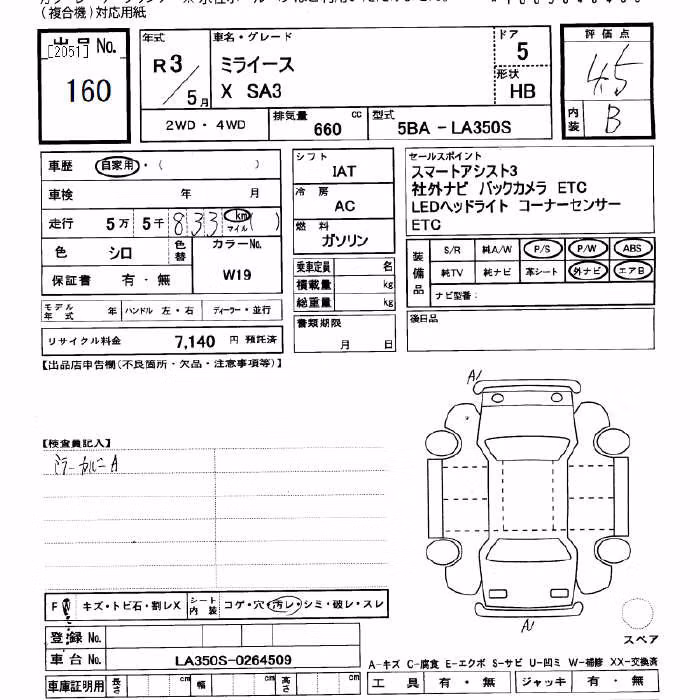 (複合機)対応用紙
出品 No.
[2051]
160
年式
R3/5月
車名・グレード
ミライース
X SA3
ドア
5
形状
HB
評価点
4.5
内装
B
2WD・4WD
排気量
660 cc
型式
5BA -LA350S
車歴 自家用・( )
車検 年 月
走行 5万 5千 833 km( )
マイル
色 シロ
色替
カラーNo.
W19
保証書 有・無
モデル年式 年
ハンドル 左・右
ディーラー・並行
リサイクル料金 7,140 円 預託済
シフト
IAT
冷房
AC
燃料
ガソリン
乗車定員 名
積載量 kg
総重量 kg
書類期限
月 日
セールスポイント
スマートアシスト3
社外ナビ バックカメラ ETC
LEDヘッドライト コーナーセンサー
ETC
装備品
S/R 純A/W P/S P/W ABS
純TV 純ナビ 革シート 外ナビ エアB
ナビ型番:
後日品
【出品店申告欄(不良箇所・欠品・注意事項等)】
【検査員記入】
A1
A1
スペア
FW キズ・トビ石・割レX
シート内装 コゲ・穴・汚レ・シミ・破レ・スレ
登録 No.
車台 No. LA350S-0264509
車庫証明用 長さ cm 幅 cm 高さ cm
A-キズ C-腐食 E-エクボ S-サビ U-凹ミ W-補修 XX-交換済
工具 有・無 ジャッキ 有・無